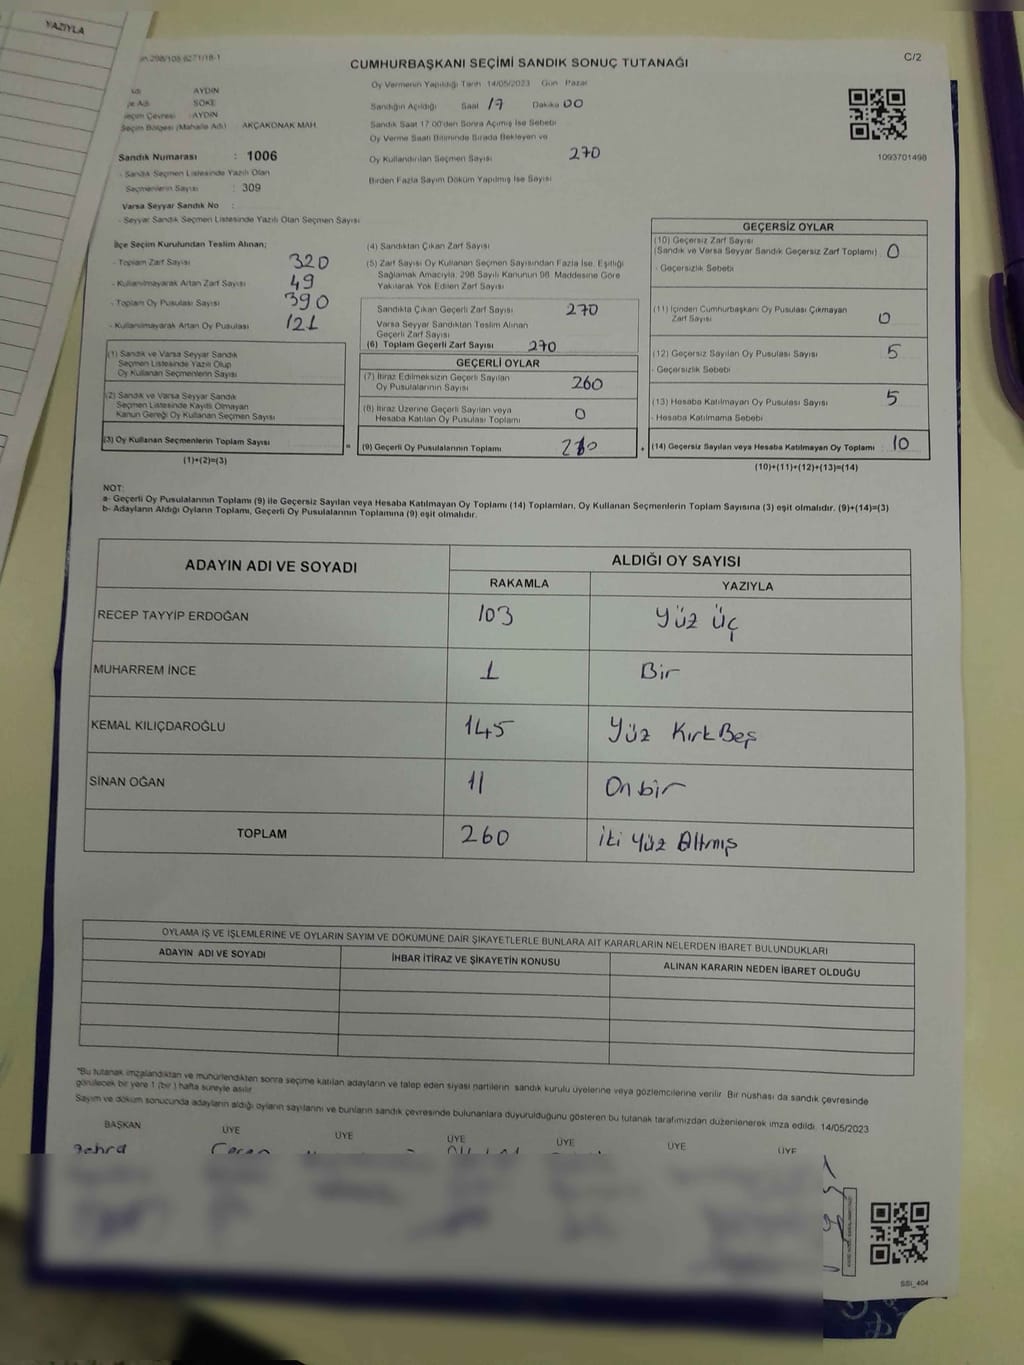 YAZIYLA
CUMHURBAŞKANI SEÇİMİ SANDIK SONUÇ TUTANAĞI
C/2
Oy Vermenin Yapıldığı Tarih 14/05/2023 Gün Pazar
AYDIN
SÖKE
AYDIN
Seçim Bölgesi (Mahalle Adı) AKÇAKONAK MAH.
Sandığın Açıldığı Saat 17 Dakika 00
Sandık Saat 17:00'den Sonra Açılmış İse Sebebi
Oy Verme Saati Bitiminde Sırada Bekleyen ve
Oy Kullandırılan Seçmen Sayısı 270
Birden Fazla Sayım Döküm Yapılmış İse Sayısı
1093701498
Sandık Numarası : 1006
- Sandık Seçmen Listesinde Yazılı Olan
Seçmenlerin Sayısı : 309
Varsa Seyyar Sandık No :
- Seyyar Sandık Seçmen Listesinde Yazılı Olan Seçmen Sayısı
İlçe Seçim Kurulundan Teslim Alınan;
- Toplam Zarf Sayısı 320
- Kullanılmayarak Artan Zarf Sayısı 49
- Toplam Oy Pusulası Sayısı 390
- Kullanılmayarak Artan Oy Pusulası 121
(1) Sandık ve Varsa Seyyar Sandık
Seçmen Listesinde Yazılı Olup
Oy Kullanan Seçmenlerin Sayısı
(2) Sandık ve Varsa Seyyar Sandık
Seçmen Listesinde Kayıtlı Olmayan
Kanun Gereği Oy Kullanan Seçmen Sayısı
(3) Oy Kullanan Seçmenlerin Toplam Sayısı =
(1)+(2)=(3)
(4) Sandıktan Çıkan Zarf Sayısı
(5) Zarf Sayısı Oy Kullanan Seçmen Sayısından Fazla İse, Eşitliği
Sağlamak Amacıyla, 298 Sayılı Kanunun 98. Maddesine Göre
Yakılarak Yok Edilen Zarf Sayısı
Sandıkta Çıkan Geçerli Zarf Sayısı 270
Varsa Seyyar Sandıktan Teslim Alınan
Geçerli Zarf Sayısı
(6) Toplam Geçerli Zarf Sayısı 270
GEÇERLİ OYLAR
(7) İtiraz Edilmeksizin Geçerli Sayılan
Oy Pusulalarının Sayısı 260
(8) İtiraz Üzerine Geçerli Sayılan veya
Hesaba Katılan Oy Pusulası Toplamı 0
(9) Geçerli Oy Pusulalarının Toplamı
GEÇERSİZ OYLAR
(10) Geçersiz Zarf Sayısı
(Sandık ve Varsa Seyyar Sandık Geçersiz Zarf Toplamı) 0
- Geçersizlik Sebebi
(11) İçinden Cumhurbaşkanı Oy Pusulası Çıkmayan
Zarf Sayısı 0
(12) Geçersiz Sayılan Oy Pusulası Sayısı 5
- Geçersizlik Sebebi
(13) Hesaba Katılmayan Oy Pusulası Sayısı 5
- Hesaba Katılmama Sebebi
(14) Geçersiz Sayılan veya Hesaba Katılmayan Oy Toplamı 10
(10)+(11)+(12)+(13)=(14)
NOT:
a- Geçerli Oy Pusulalarının Toplamı (9) ile Geçersiz Sayılan veya Hesaba Katılmayan Oy Toplamı (14) Toplamları, Oy Kullanan Seçmenlerin Toplam Sayısına (3) eşit olmalıdır. (9)+(14)=(3)
b- Adayların Aldığı Oyların Toplamı, Geçerli Oy Pusulalarının Toplamına (9) eşit olmalıdır.
ADAYIN ADI VE SOYADI ALDIĞI OY SAYISI
RAKAMLA YAZIYLA
RECEP TAYYİP ERDOĞAN 103 Yüz üç
MUHARREM İNCE 1 Bir
KEMAL KILIÇDAROĞLU 145 Yüz Kırk Beş
SİNAN OĞAN 11 Onbir
TOPLAM 260 iki Yüz Altmış
OYLAMA İŞ VE İŞLEMLERİNE VE OYLARIN SAYIM VE DÖKÜMÜNE DAİR ŞİKAYETLERLE BUNLARA AİT KARARLARIN NELERDEN İBARET BULUNDUKLARI
ADAYIN ADI VE SOYADI İHBAR İTİRAZ VE ŞİKAYETİN KONUSU ALINAN KARARIN NEDEN İBARET OLDUĞU
"Bu tutanak imzalandıktan ve mühürlendikten sonra seçime katılan adayların ve talep eden siyasi partilerin sandık kurulu üyelerine veya gözlemcilerine verilir. Bir nüshası da sandık çevresinde
görülecek bir yere 1 (bir ) hafta süreyle asılır.
Sayım ve döküm sonucunda adayların aldığı oyların sayılarını ve bunların sandık çevresinde bulunanlara duyurulduğunu gösteren bu tutanak tarafımızdan düzenlenerek imza edildi. 14/05/2023
BAŞKAN ÜYE ÜYE ÜYE ÜYE ÜYE ÜYE
SSI_404